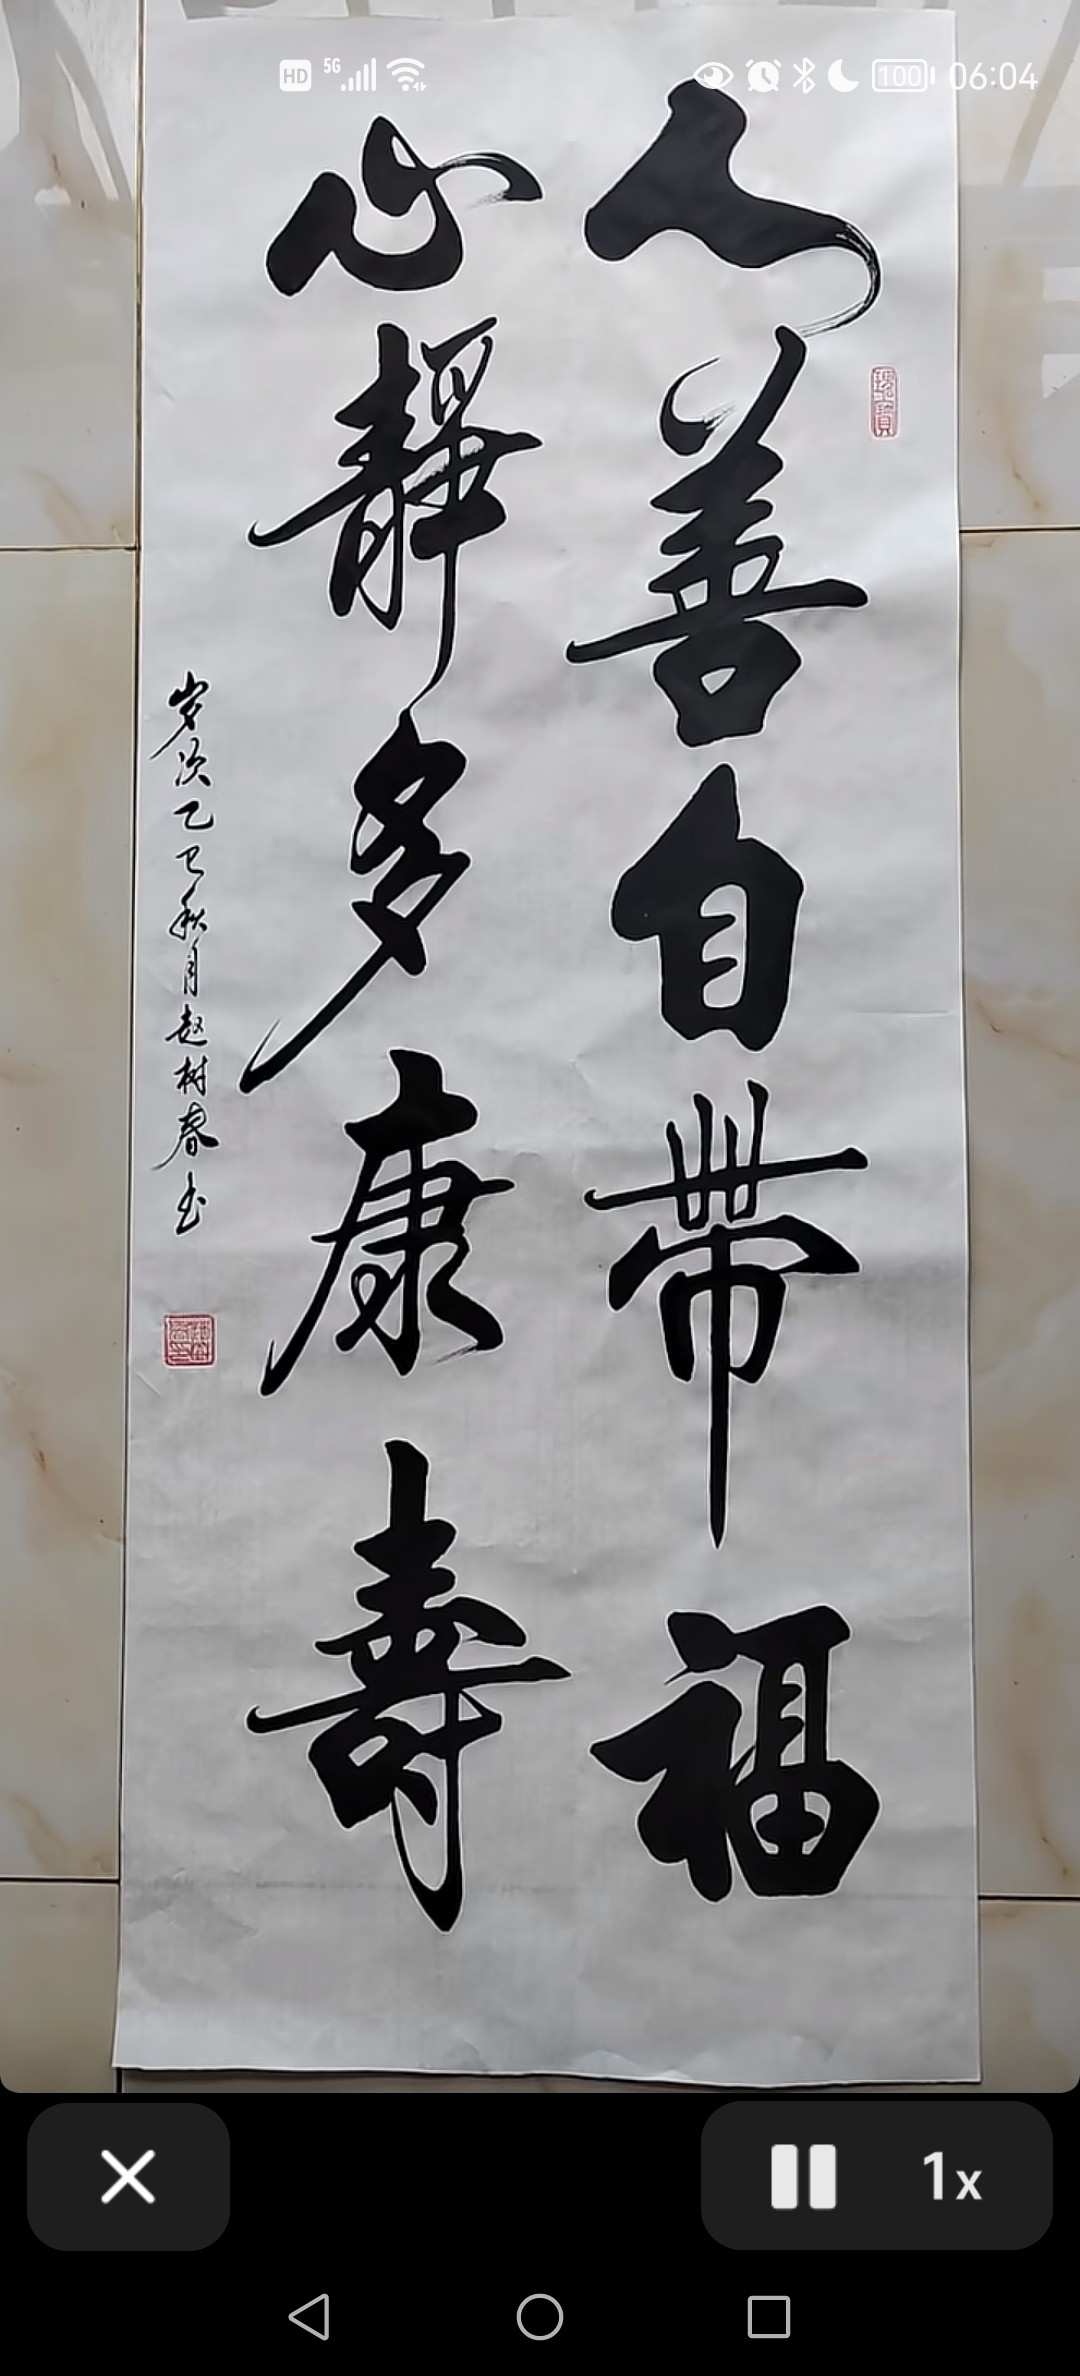 HD 5G 100 06:04
人善自带福
心静多康寿
岁次乙巳秋月赵树春书
1x